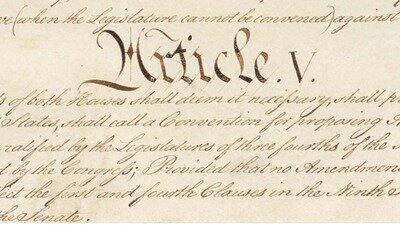 (when the Legislature cannot be convened) against
Article. V.
of both Houses shall deem it necessary, shall
States, shall call a Convention for proposing
ratified by the Legislatures of three fourths of the
by the Congress; Provided that no Amendment
the first and fourth Clauses in the Ninth
the Senate.